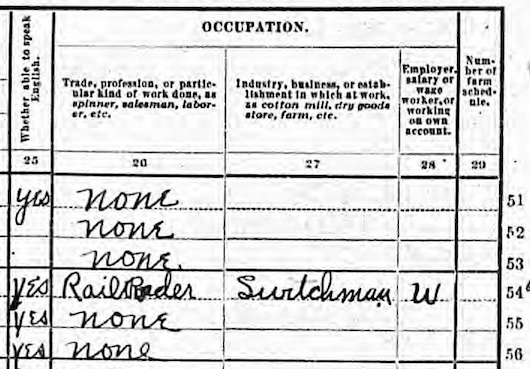 OCCUPATION.
Whether able to speak English.
Trade, profession, or particular kind of work done, as spinner, salesman, laborer, etc.
Industry, business, or establishment in which at work, as cotton mill, dry goods store, farm, etc.
Employer, salary or wage worker, or working on own account.
Number of farm schedule.
25 26 27 28 29
yes none 51
none 52
none. 53
yes Railroader Switchman W 54
yes none 55
yes none 56